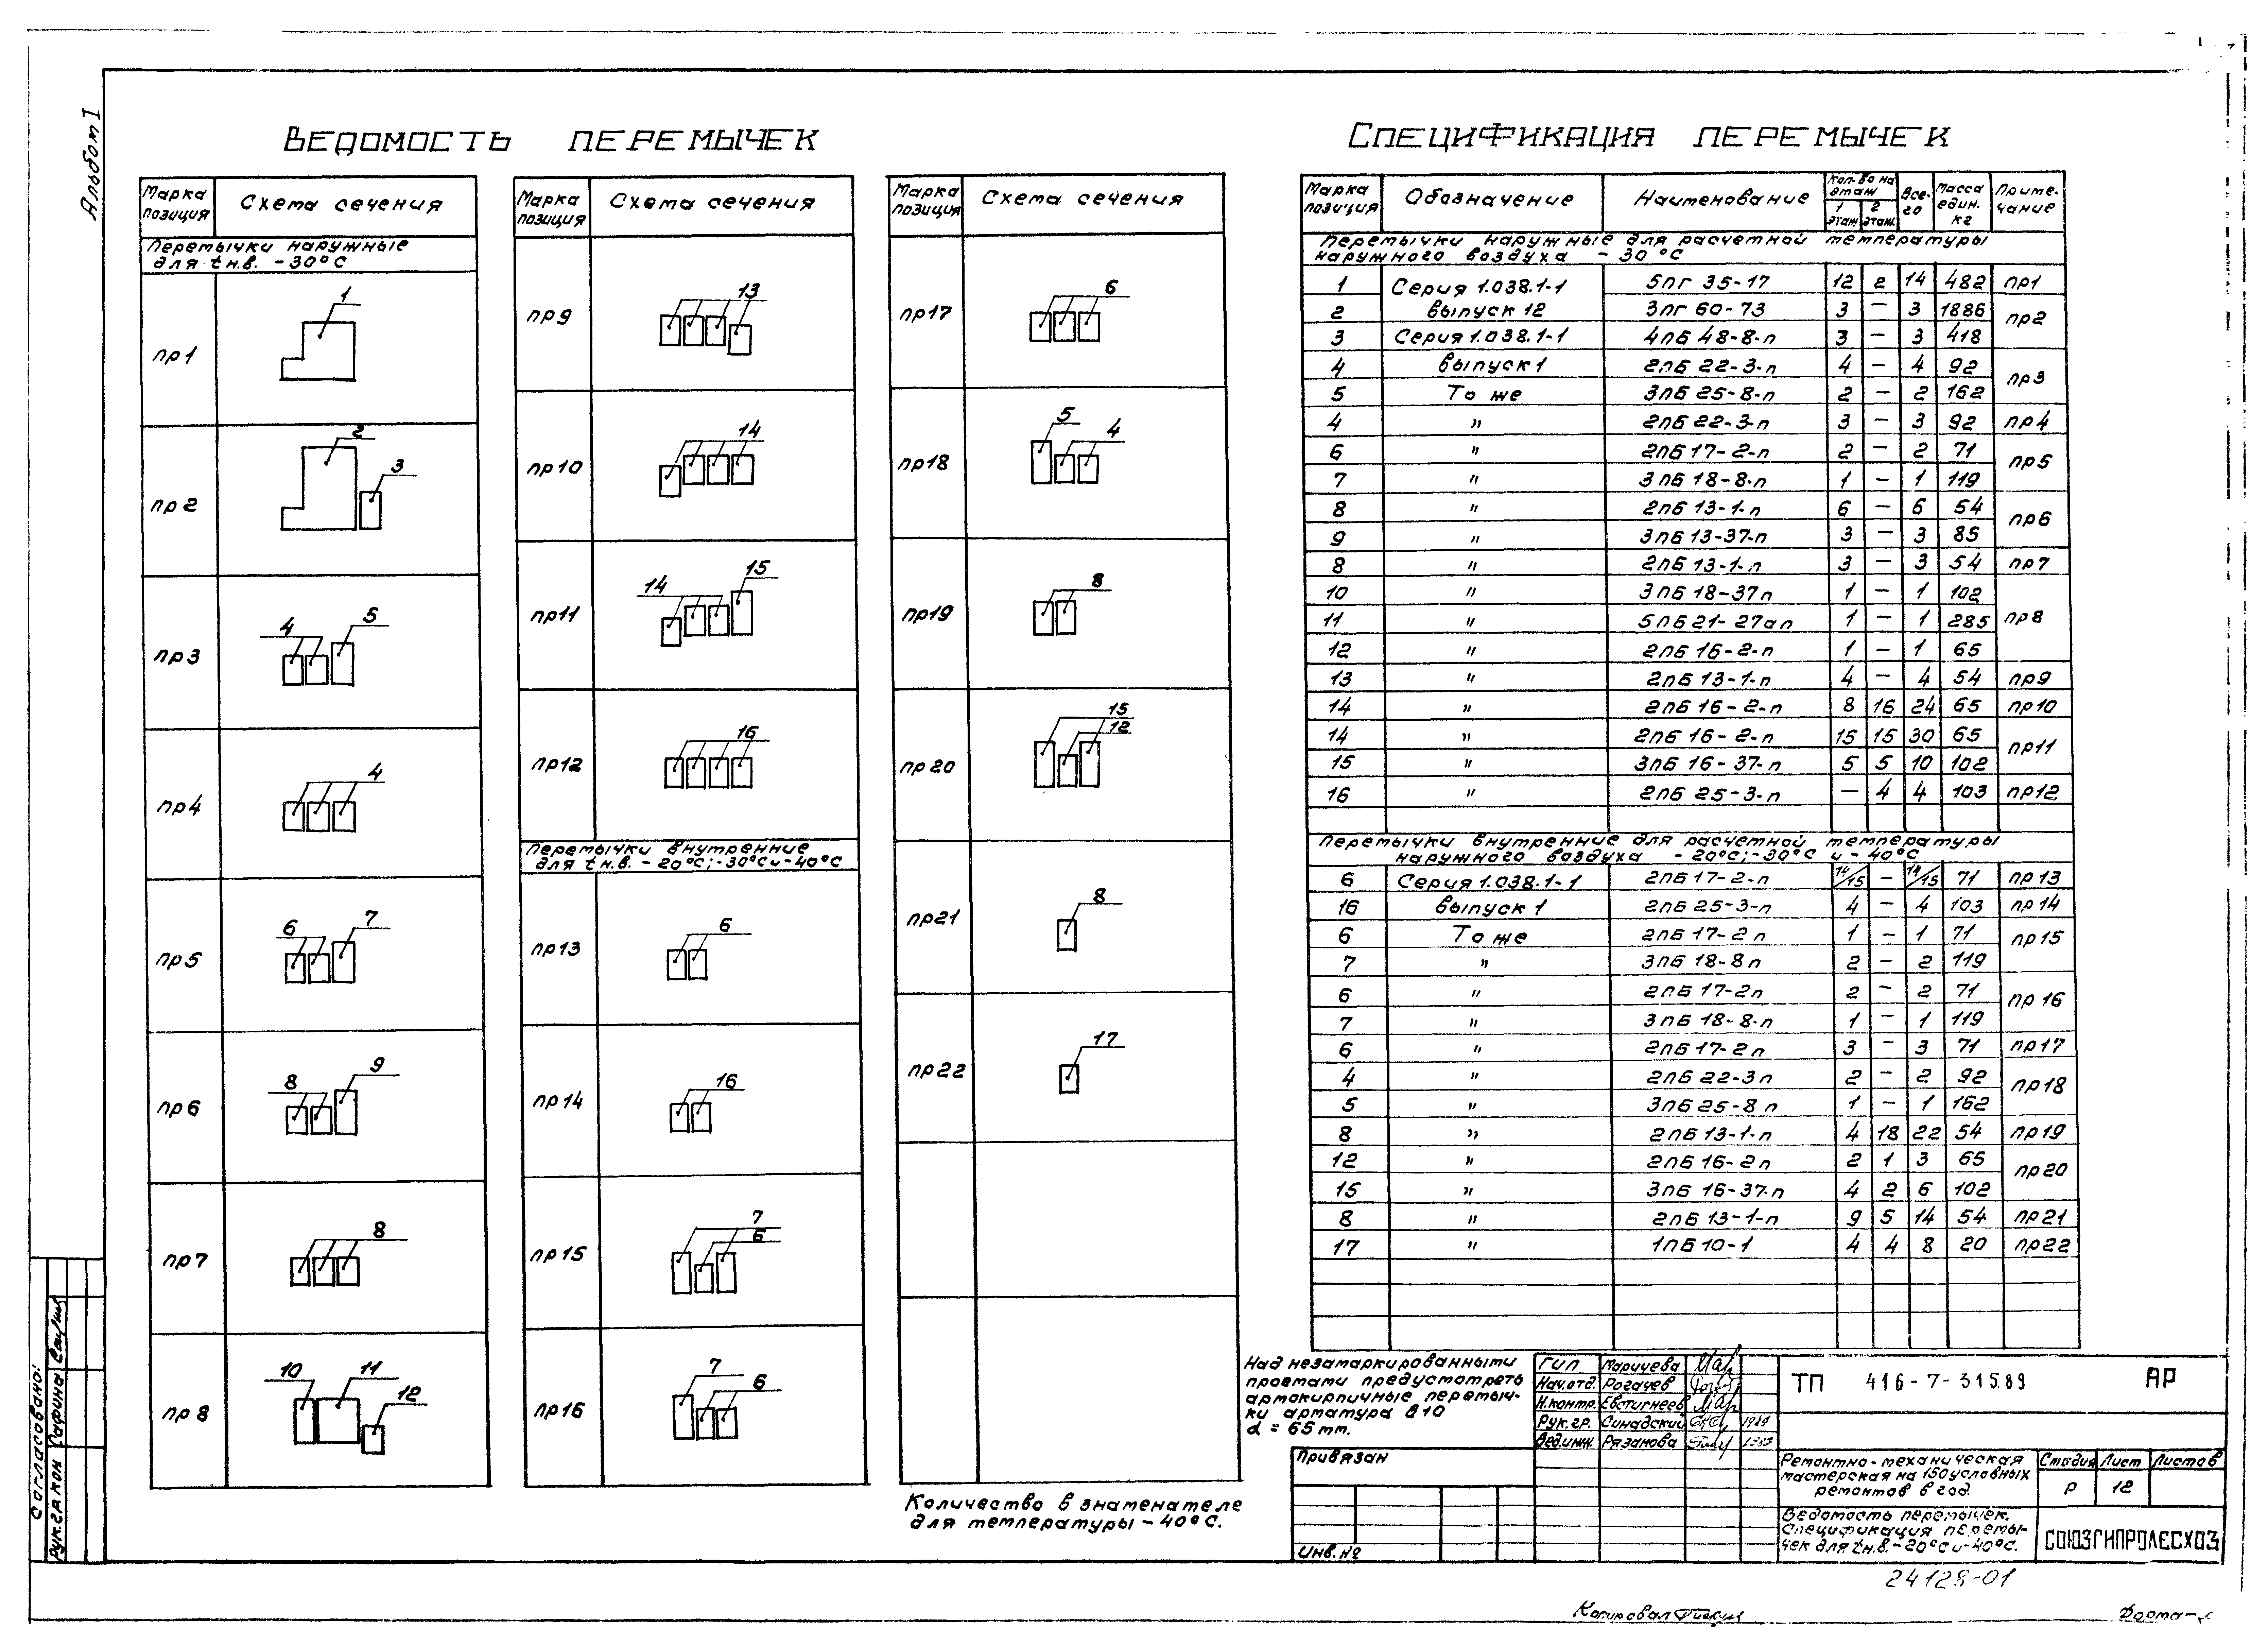 Альбом I
Ведомость перемычек
Марка позиция
Схема сечения
Перемычки наружные
для t н.в. -30°С
пр1
1
пр2
2
3
пр3
4
5
пр4
4
пр5
6
7
пр6
8
9
пр7
8
пр8
10
11
12
Марка позиция
Схема сечения
пр9
13
пр10
14
пр11
14
15
пр12
16
Перемычки внутренние
для t н.в. -20°С; -30°С и -40°С
пр13
6
пр14
16
пр15
7
6
пр16
7
6
Марка позиция
Схема сечения
пр17
6
пр18
5
4
пр19
8
пр20
15
12
пр21
8
пр22
17
Количество в знаменателе
для температуры -40°С.
Спецификация перемычек
Марка позиция Обозначение Наименование Кол-во на этаж 1 этаж 2 этаж Всего Масса един. кг Примечание
Перемычки наружные для расчетной температуры
наружного воздуха -30°С
1 Серия 1.038.1-1 5пг 35-17 12 2 14 482 пр1
2 выпуск 12 3пг 60-73 3 — 3 1886 пр2
3 Серия 1.038.1-1 4пб 48-8-п 3 — 3 418
4 выпуск 1 2пб 22-3-п 4 — 4 92 пр3
5 То же 3пб 25-8-п 2 — 2 162
4 " 2пб 22-3-п 3 — 3 92 пр4
6 " 2пб 17-2-п 2 — 2 71 пр5
7 " 3пб 18-8-п 1 — 1 119
8 " 2пб 13-1-п 6 — 6 54 пр6
9 " 3пб 13-37-п 3 — 3 85
8 " 2пб 13-1-п 3 — 3 54 пр7
10 " 3пб 18-37п 1 — 1 102 пр8
11 " 5пб 21-27ап 1 — 1 285
12 " 2пб 16-2-п 1 — 1 65
13 " 2пб 13-1-п 4 — 4 54 пр9
14 " 2пб 16-2-п 8 16 24 65 пр10
14 " 2пб 16-2-п 15 15 30 65 пр11
15 " 3пб 16-37-п 5 5 10 102
16 " 2пб 25-3-п — 4 4 103 пр12
Перемычки внутренние для расчетной температуры
наружного воздуха -20°С; -30°С и -40°С
6 Серия 1.038.1-1 2пб 17-2-п 14/15 — 14/15 71 пр13
16 выпуск 1 2пб 25-3-п 4 — 4 103 пр14
6 То же 2пб 17-2п 1 — 1 71 пр15
7 " 3пб 18-8п 2 — 2 119
6 " 2пб 17-2п 2 — 2 71 пр16
7 " 3пб 18-8-п 1 — 1 119
6 " 2пб 17-2п 3 — 3 71 пр17
4 " 2пб 22-3п 2 — 2 92 пр18
5 " 3пб 25-8п 1 — 1 162
8 " 2пб 13-1-п 4 18 22 54 пр19
12 " 2пб 16-2п 2 1 3 65 пр20
15 " 3пб 16-37-п 4 2 6 102
8 " 2пб 13-1-п 9 5 14 54 пр21
17 " 1пб 10-1 4 4 8 20 пр22
Над незамаркированными
проемами предусмотреть
армокирпичные перемыч-
ки арматура В10
d = 65 mm.
ГИП Маричева
Нач.отд. Рогачев
Н.контр. Евстигнеев
Рук.гр. Синадский 1989
Вед.инж. Рязанова
ТП 416-7-315.89 АР
Привязан
Инв.№
Ремонтно-механическая
мастерская на 150 условных
ремонтов в год.
Стадия Лист Листов
Р 12
Ведомость перемычек.
Спецификация перемы-
чек для t н.в. -20°С и -40°С.
СОЮЗГИПРОЛЕСХОЗ
24128-01
Копировал
Форма
Согласовано:
Рук.гр.кон Сафина